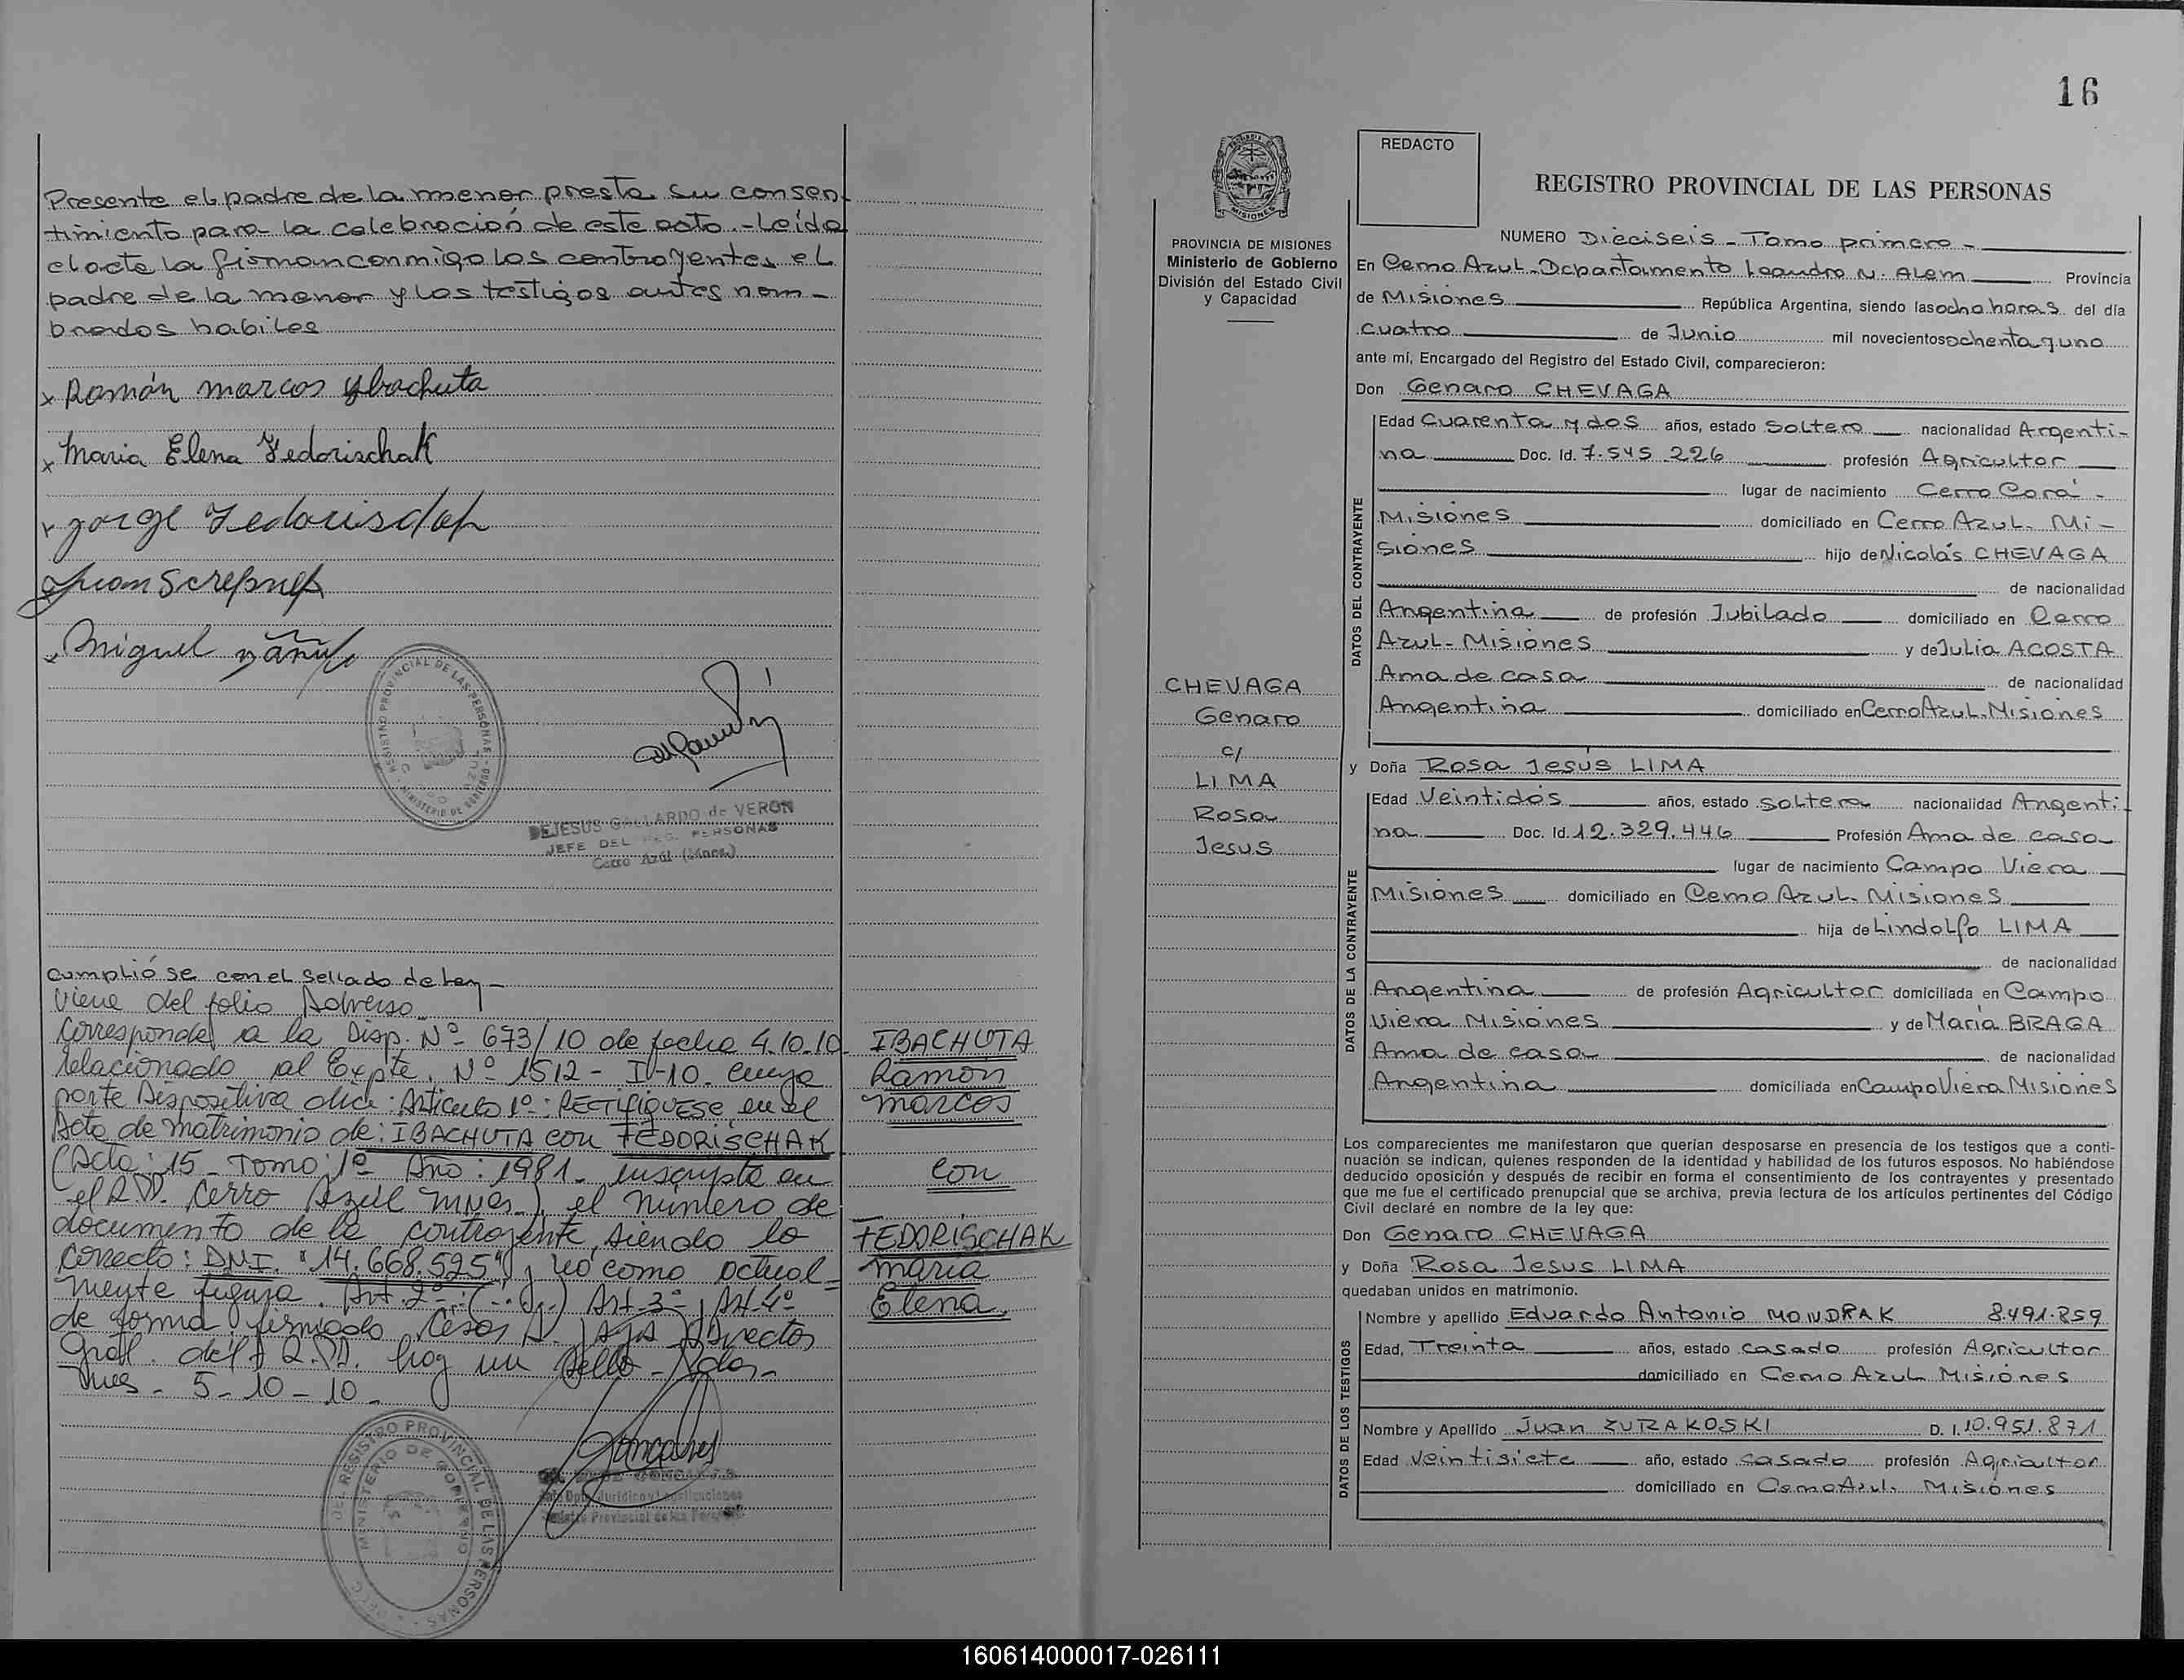 Presente el padre de la menor presta su consen-
timiento para la celebración de este acto.- Leída
el acta la firman conmigo los contrayentes el
padre de la menor y los testigos antes nom-
brados habiles
x Román marcos Ybachuta
x Maria Elena Fedorischak
x Jorge Fedorischak
Juan
Miguel
REGISTRO PROVINCIAL DE LAS PERSONAS
MINISTERIO DE GOBIERNO
DEJESUS GALLARDO de VERON
JEFE DEL REG. PERSONAS
Cerro Azul (Mnes.)
Cumplióse con el Sellado de Ley-
Viene del folio Adverso.
Corresponde a la Disp. Nº 673/10 de fecha 4.10.10
relacionado al Expte. Nº 1512 - I-10. cuya
parte Dispositiva dice: Articulo 1º: RECTIFIQUESE en el
Acta de Matrimonio de: IBACHUTA con FEDORISCHAK
(Acta: 15 - Tomo: 1º Año: 1981 - inscripta en
el R.PP. Cerro Azul Mnes.), el número de
documento de la contrayente, siendo lo
correcto: DNI. "14.668.525" y no como actual-
mente figura. Art. 2º: Art. 3º, Art. 4º
de forma firmado Director
Gral. del R.PP. hay un Sello - Pdas-
Mnes - 5-10-10-
IBACHUTA
Ramón
Marcos
con
FEDORISCHAK
Maria
Elena
REGISTRO PROVINCIAL DE LAS PERSONAS
MINISTERIO DE GOBIERNO
Dpto. Jurídico y
Registro Provincial de las Personas
16
PROVINCIA DE MISIONES
Ministerio de Gobierno
División del Estado Civil
y Capacidad
CHEVAGA
Genaro
c/
LIMA
Rosa
Jesus
REDACTO
REGISTRO PROVINCIAL DE LAS PERSONAS
NUMERO Dieciseis - Tomo primero -
En Cerro Azul - Departamento Leandro N. Alem Provincia
de Misiones República Argentina, siendo las ocho horas del día
cuatro de Junio mil novecientos ochenta y uno
ante mí, Encargado del Registro del Estado Civil, comparecieron:
Don Genaro CHEVAGA
DATOS DEL CONTRAYENTE
Edad Cuarenta y dos años, estado Soltero nacionalidad Argenti-
na Doc. Id. 7.545.226 profesión Agricultor
lugar de nacimiento Cerro Corá -
Misiones domiciliado en Cerro Azul - Mi-
siones hijo de Nicolás CHEVAGA
de nacionalidad
Argentina de profesión Jubilado domiciliado en Cerro
Azul - Misiones y de Julia ACOSTA
Ama de casa de nacionalidad
Argentina domiciliado en Cerro Azul. Misiones
y Doña Rosa Jesús LIMA
DATOS DE LA CONTRAYENTE
Edad Veintidós años, estado soltera nacionalidad Argenti-
na Doc. Id. 12.329.446 Profesión Ama de casa
lugar de nacimiento Campo Viera
Misiones domiciliado en Cerro Azul. Misiones
hija de Lindolfo LIMA
de nacionalidad
Argentina de profesión Agricultor domiciliada en Campo
Viera Misiones y de María BRAGA
Ama de casa de nacionalidad
Argentina domiciliada en Campo Viera Misiones
Los comparecientes me manifestaron que querían desposarse en presencia de los testigos que a conti-
nuación se indican, quienes responden de la identidad y habilidad de los futuros esposos. No habiéndose
deducido oposición y después de recibir en forma el consentimiento de los contrayentes y presentado
que me fue el certificado prenupcial que se archiva, previa lectura de los artículos pertinentes del Código
Civil declaré en nombre de la ley que:
Don Genaro CHEVAGA
y Doña Rosa Jesus LIMA
quedaban unidos en matrimonio.
DATOS DE LOS TESTIGOS
Nombre y apellido Eduardo Antonio MONDRAK 8.491.859
Edad, Treinta años, estado casado profesión Agricultor
domiciliado en Cerro Azul Misiones
Nombre y Apellido Juan ZURAKOSKI D. I. 10.951.871
Edad Veintisiete año, estado casado profesión Agricultor
domiciliado en Cerro Azul. Misiones
160614000017-026111